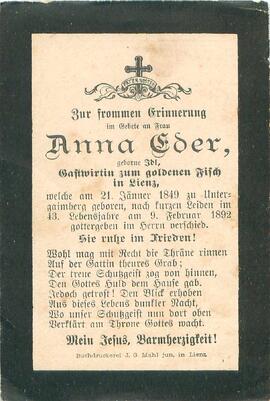 Zur frommen Erinnerung
im Gebete an Frau
Anna Eder,
geborne Idl,
Gastwirtin zum goldenen Fisch
in Lienz,
welche am 21. Jänner 1849 zu Unter-
gaimberg geboren, nach kurzen Leiden im
43. Lebensjahre am 9. Februar 1892
gottergeben im Herrn verschied.
Sie ruhe im Frieden!
Wohl mag mit Recht die Thräne rinnen
Auf der Gattin theures Grab;
Der treue Schutzgeist zog von hinnen,
Den Gottes Huld dem Hause gab.
Jedoch getrost! Den Blick erhoben
Aus dieses Lebens dunkler Nacht,
Wo unser Schutzgeist nun dort oben
Verklärt am Throne Gottes wacht.
Mein Jesus, Barmherzigkeit!
Buchdruckerei J. G. Mahl jun. in Lienz.